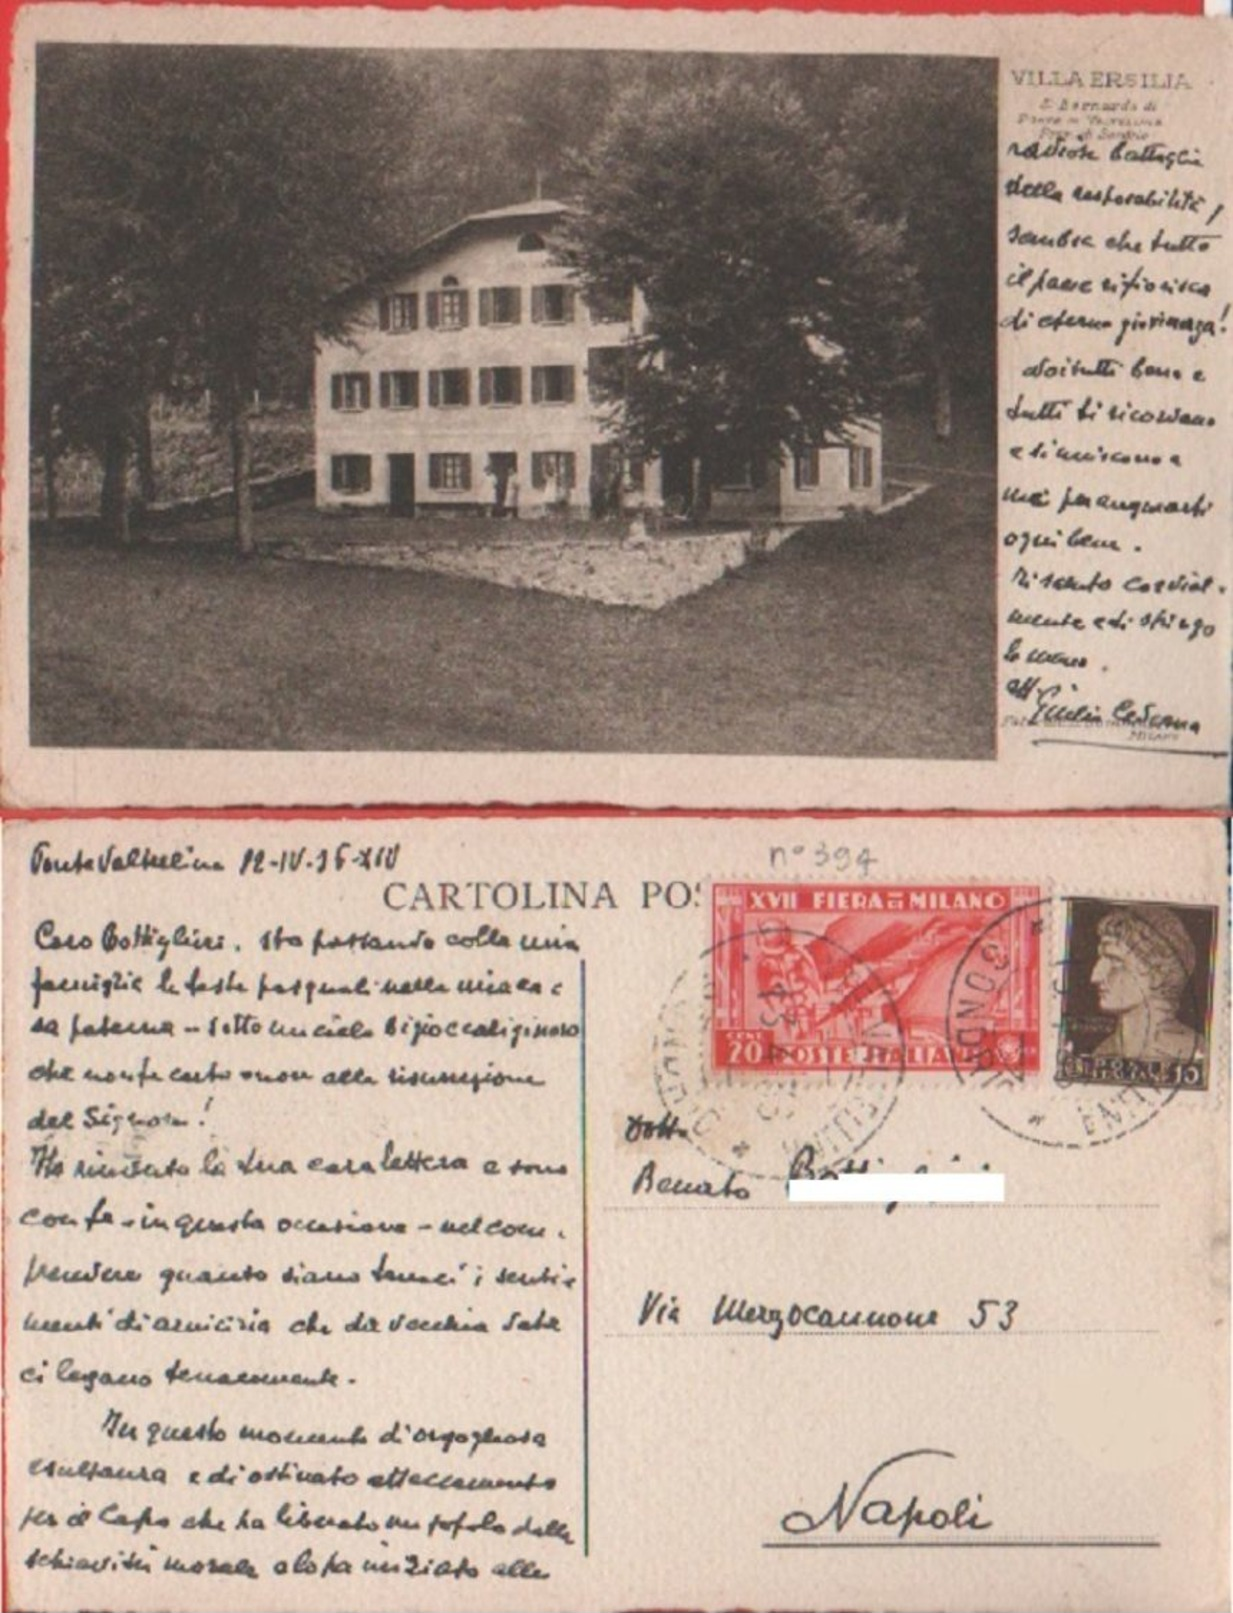 VILLA ERSILIA
S. Bernardo di
Ponte in Valtellina
Prov. di Sondrio
radiosa battaglia
della responsabilità,
sembra che tutto
il paese rifiorisca
di eterna giovinezza!
Noi tutti bene e
tutti ti ricordano
e si uniscono a
me per augurarti
ogni bene.
Ti saluto cordial-
mente e ti stringo
la mano.
Giulio Cederna
MILANO
Ponte Valtellina 12-IV-36-XIV
n° 394
CARTOLINA POS
XVII FIERA DI MILANO
CENT 20 POSTE ITALIANE
15
Caro Bottiglieri, sto passando colla mia
famiglia le feste pasquali nella mia ca=
sa paterna - sotto un cielo bigio e caliginoso
che non fa certo onore alla risurrezione
del Signore!
Ho ricevuto la tua cara lettera e sono
con te - in questa occasione - nel com-
prendere quanto siano tenaci i senti=
menti di amicizia che da vecchia data
ci legano tenacemente.
In questo momento di orgogliosa
esultanza e di ostinato attaccamento
per il Capo che ha liberato un popolo dalla
schiavitù morale e lo ha iniziato alla
Dott.
Renato
Via Mezzocannone 53
Napoli